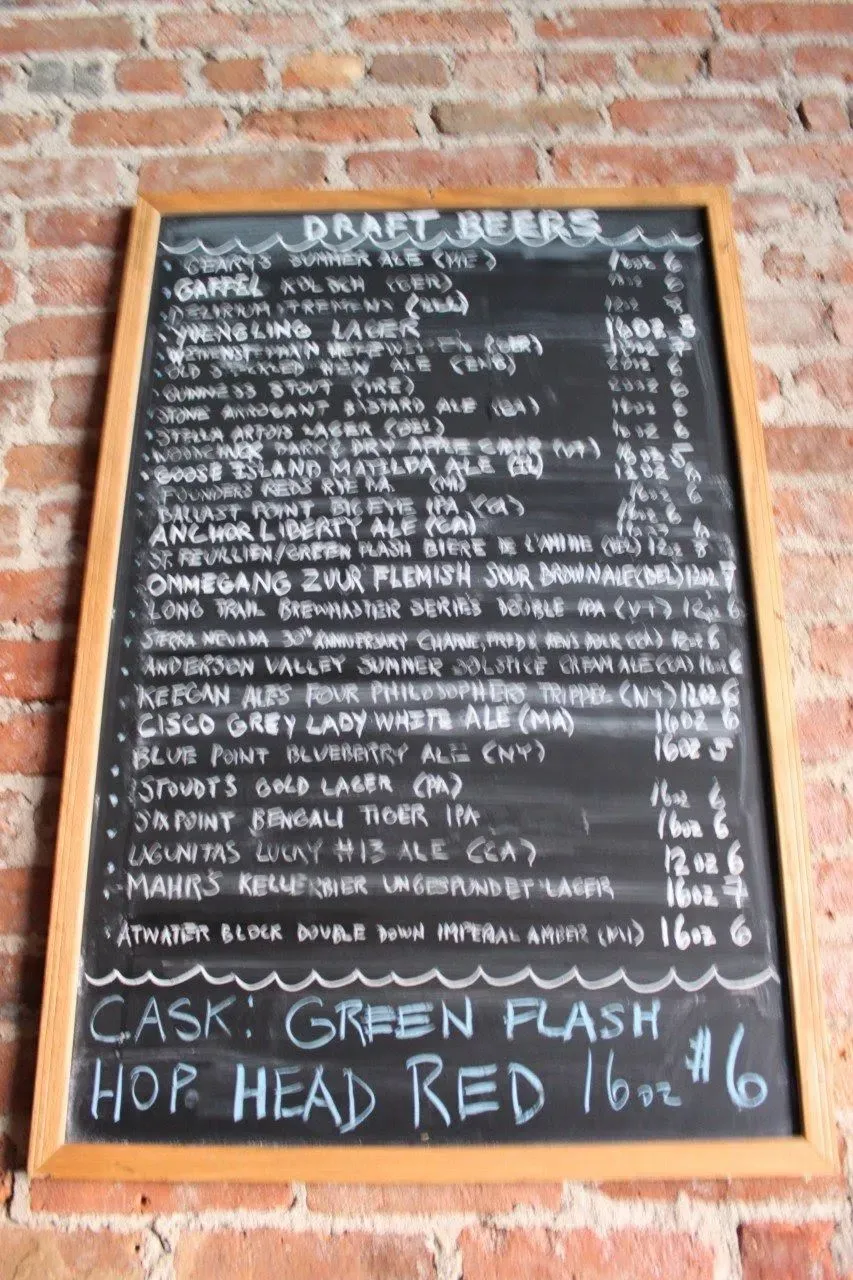 DRAFT BEERS
GEARY'S SUMMER ALE (ME) 16oz 6
GAFFEL KOLSCH (GER) 16oz 6
DELIRIUM TREMENS (BEL) 8
YUENGLING LAGER 16oz 5
(GER) 16oz 7
OLD SPECKLED HEN ALE (ENG) 20oz 6
GUINNESS STOUT (IRE) 20oz 6
STONE ARROGANT BASTARD ALE (CA) 16oz 6
STELLA ARTOIS LAGER (BEL) 16oz 6
WOODCHUCK DARK & DRY APPLE CIDER (VT) 16oz 5
GOOSE ISLAND MATILDA ALE (IL)
FOUNDERS REDS RYE PA (MI) 16oz 6
BALLAST POINT BIG EYE IPA (CA) 16oz 6
ANCHOR LIBERTY ALE (CA) 16oz
ST. FEUILLIEN/GREEN FLASH BIERE DE L'AMITIE (BEL) 12oz 8
OMMEGANG ZUUR FLEMISH SOUR BROWN ALE (BEL) 12oz 7
LONG TRAIL BREWMASTER SERIES DOUBLE IPA (VT) 12oz 6
SIERRA NEVADA 30th ANNIVERSARY CHARLIE, FRED & KEN'S BOCK (CA) 12oz 6
ANDERSON VALLEY SUMMER SOLSTICE CREAM ALE (CA) 16oz 6
KEEGAN ALES FOUR PHILOSOPHERS TRIPPEL (NY) 12oz 6
CISCO GREY LADY WHITE ALE (MA) 16oz 6
BLUE POINT BLUEBERRY ALE (NY) 16oz 5
STOUDT'S GOLD LAGER (PA) 16oz 6
SIXPOINT BENGALI TIGER IPA 16oz 6
LAGUNITAS LUCKY #13 ALE (CA) 12oz 6
MAHR'S KELLERBIER UNGESPUNDET LAGER 16oz 7
ATWATER BLOCK DOUBLE DOWN IMPERIAL AMBER (MI) 16oz 6
CASK: GREEN FLASH
HOP HEAD RED 16oz #6